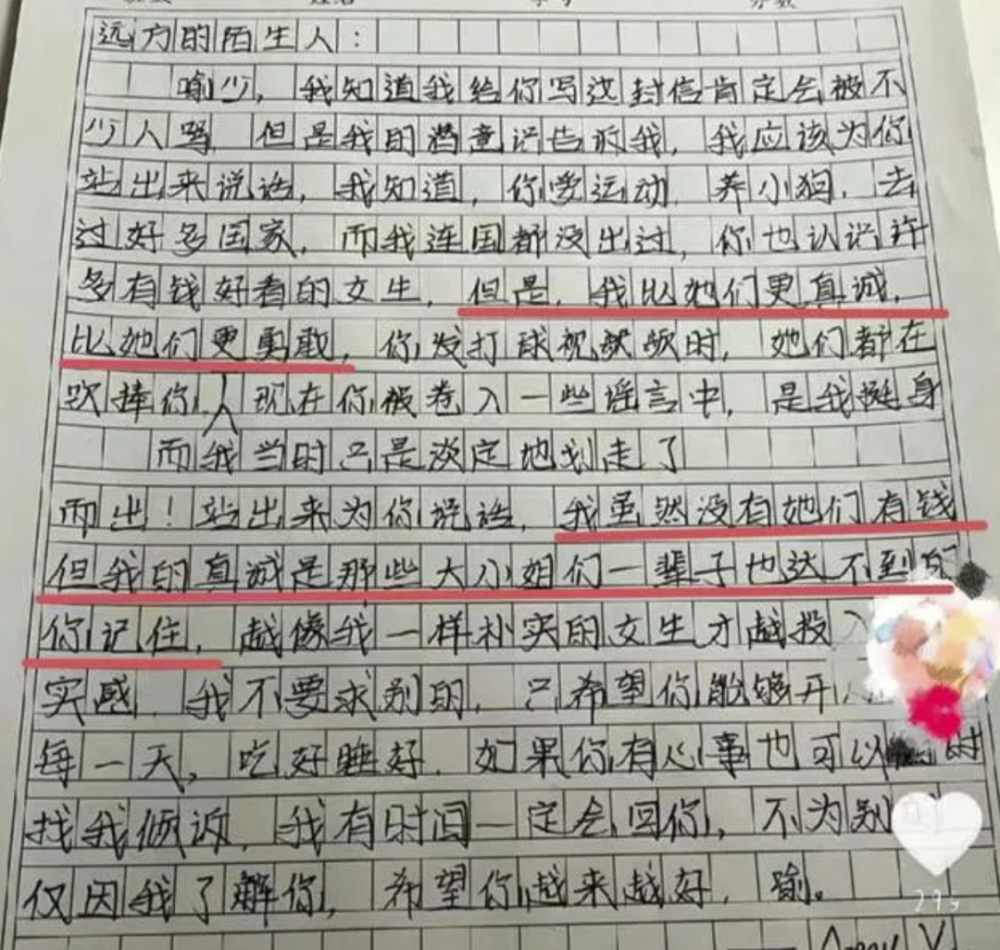 远方的陌生人：
喻少，我知道我给你写这封信肯定会被不
少人骂，但是我的潜意识告诉我，我应该为你
站出来说话，我知道，你爱运动，养小狗，去
过好多国家，而我连国都没出过，你也认识许
多有钱好看的女生，但是，我比她们更真诚，
比她们更勇敢，你发打球视频时，她们都在
吹捧你，现在你被卷入一些谣言中，是我挺身
而我当时只是淡定地划走了
而出！站出来为你说话，我虽然没有她们有钱
但我的真诚是那些大小姐们一辈子也达不到的
你记住，越像我一样朴实的女生才越投入
实感，我不要求别的，只希望你能够开
每一天，吃好睡好，如果你有心事也可以 时
找我倾诉，我有时间一定会回你，不为别
仅因我了解你，希望你越来越好，喻。
295